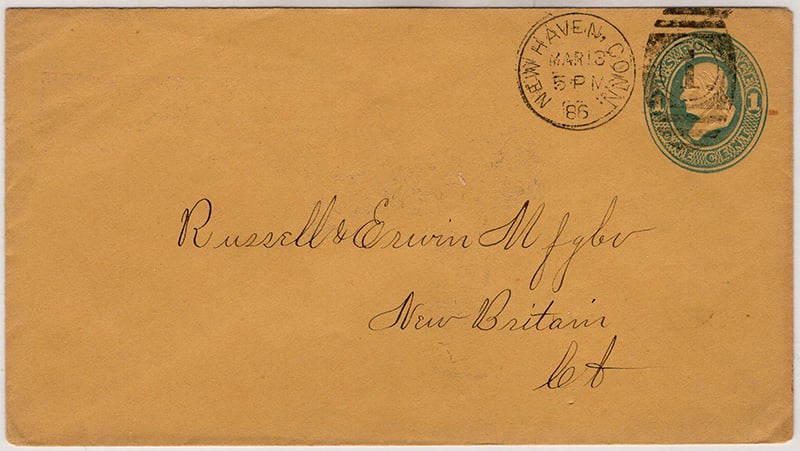 NEW HAVEN, CONN.
MAR 13
5 PM
86
1 1
ONE CENT
Russell & Erwin Mfg Co
New Britain
Ct